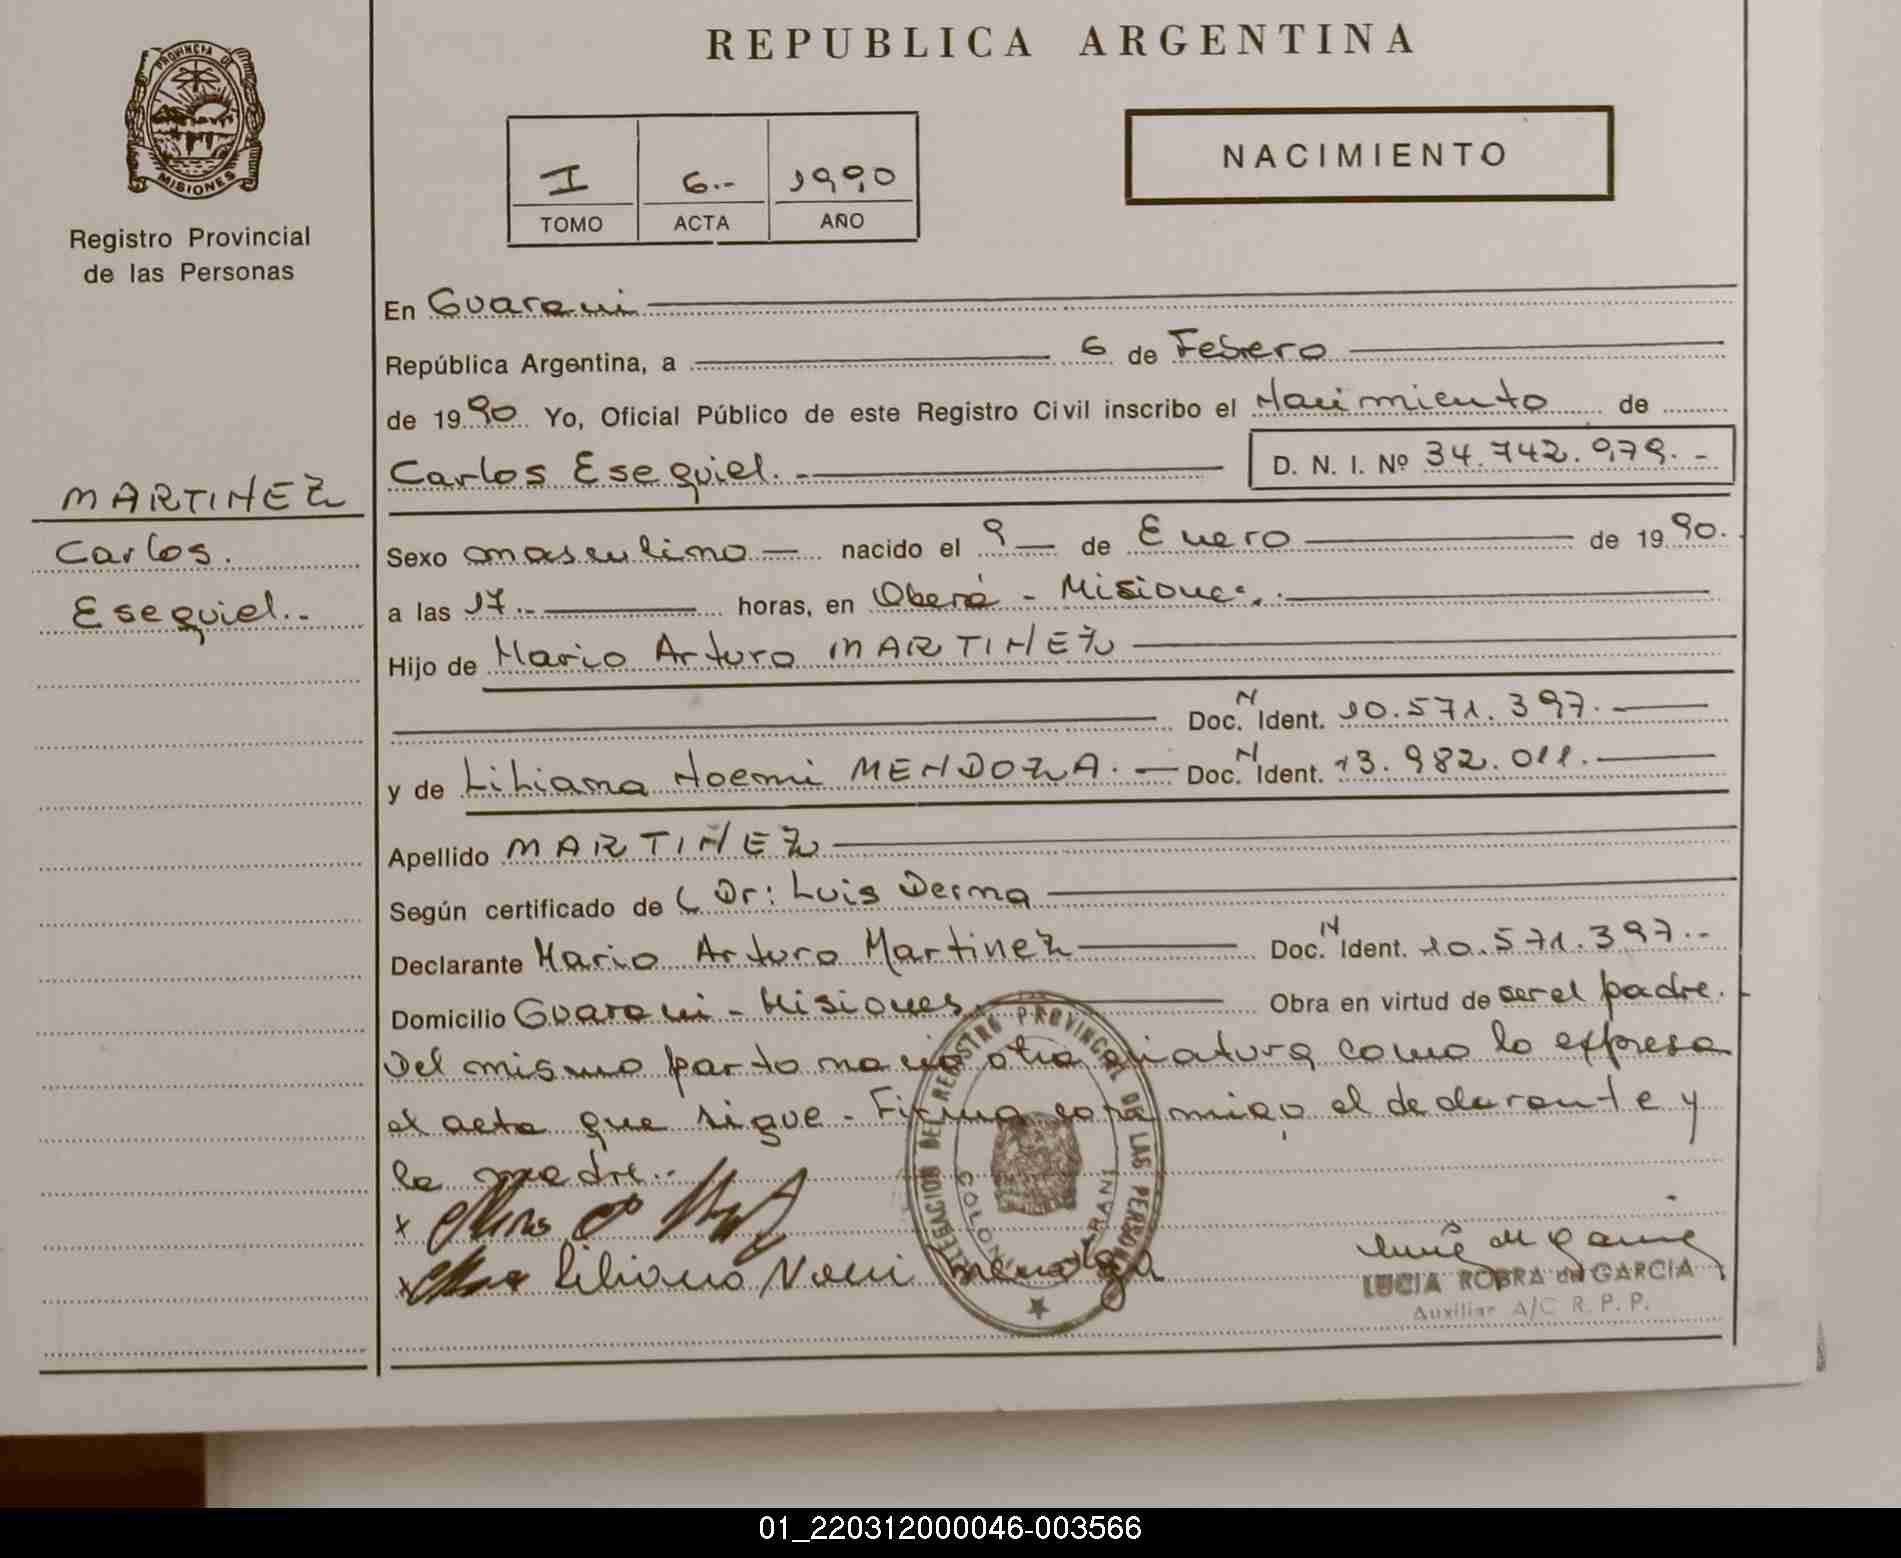 REPUBLICA ARGENTINA
PROVINCIA DE
MISIONES
Registro Provincial
de las Personas
I 6.- 1990
TOMO ACTA AÑO
NACIMIENTO
En Guarani
República Argentina, a 6 de Febrero
de 1990 Yo, Oficial Público de este Registro Civil inscribo el Nacimiento de
Carlos Esequiel.- D. N. I. Nº 34.742.979.-
MARTINEZ
Carlos.
Esequiel.-
Sexo masculino — nacido el 9 — de Enero de 1990.
a las 17.- horas, en Oberá - Misiones.
Hijo de Mario Arturo MARTINEZ
Doc. N Ident. 10.571.397.
y de Liliana Noemi MENDOZA. — Doc. N Ident. 13.982.011.
Apellido MARTINEZ
Según certificado de Dr: Luis Derna
Declarante Mario Arturo Martinez Doc. N Ident. 10.571.397.-
Domicilio Guarani - Misiones. Obra en virtud de ser el padre.
Del mismo parto nacio otra criatura como lo expresa
el acta que sigue - Firma conmigo el declarante y
la madre.-
x
x Liliana Noemi Mendoza
DELEGACION DEL REGISTRO PROVINCIAL DE LAS PERSONAS
COLONIA GUARANI
LUCIA ROBRA de GARCIA
Auxiliar A/C R. P. P.
01_220312000046-003566